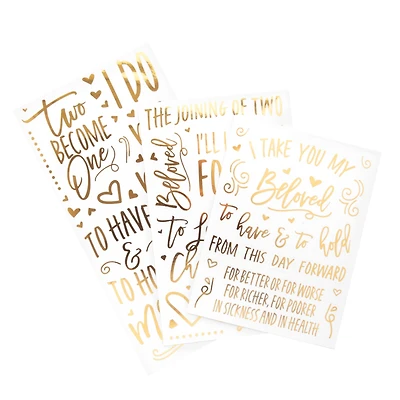 I DO
two
BECOME
One
TO HAVE
&
TO
THE JOINING OF TWO
I'LL
Beloved
to
I TAKE YOU MY
Beloved
to have & to hold
FROM THIS DAY FORWARD
FOR BETTER OR FOR WORSE
FOR RICHER, FOR POORER
IN SICKNESS AND IN HEALTH